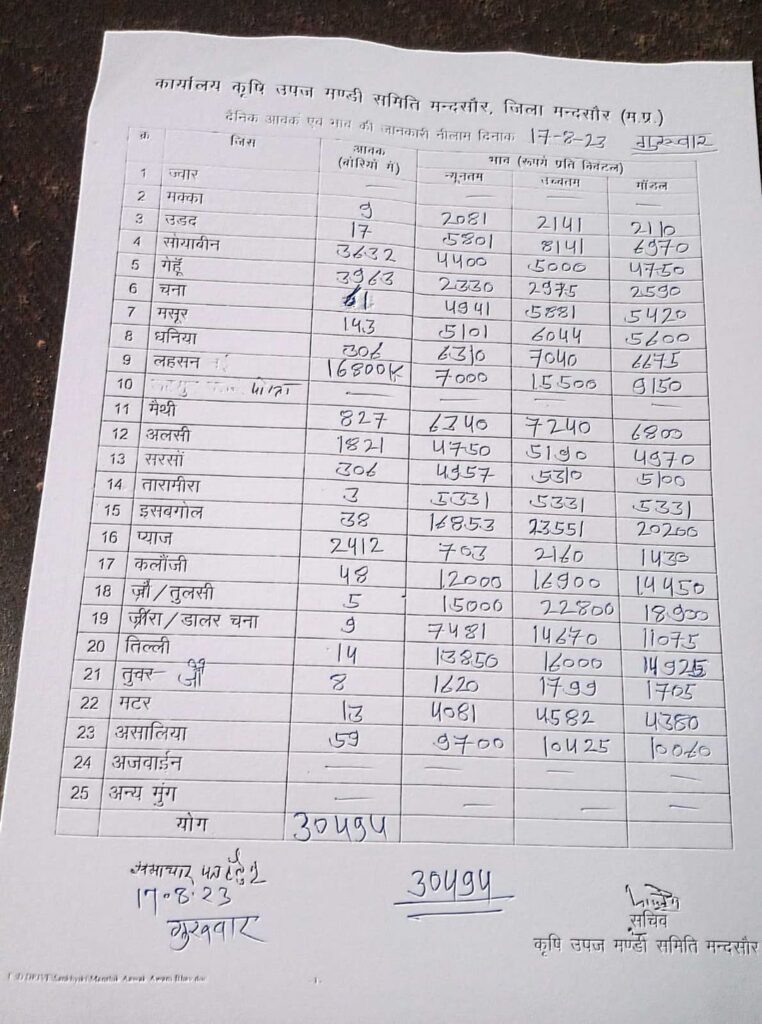 कार्यालय कृषि उपज मण्डी समिति मन्दसौर, जिला मन्दसौर (म.प्र.)
दैनिक आवक एवं भाव की जानकारी नीलाम दिनाक 17-8-23 गुरूवार
क्र जिंस आवक (बोरियों में) भाव (रूपये प्रति क्विंटल)
न्यूनतम उच्चतम मॉडल
1 ज्वार — — — —
2 मक्का 9 2081 2141 2110
3 उडद 17 5801 8141 6970
4 सोयाबीन 3632 4400 5000 4750
5 गेहूँ 3963 2330 2975 2590
6 चना 61 4941 5881 5420
7 मसूर 143 5101 6044 5600
8 धनिया 306 6310 7040 6675
9 लहसन 16800K 7000 15500 9150
10 — — — —
11 मैथी 827 6340 7240 6800
12 अलसी 1821 4750 5190 4970
13 सरसों 306 4957 5310 5100
14 तारामीरा 3 5331 5331 5331
15 इसबगोल 38 16853 23551 20200
16 प्याज 2412 703 2160 1430
17 कलौंजी 48 12000 16900 14450
18 जौ/तुलसी 5 15000 22800 18900
19 जीरा/डालर चना 9 7481 14670 11075
20 तिल्ली 14 13850 16000 14925
21 तुवर- जौ 8 1620 1799 1705
22 मटर 13 4081 4582 4380
23 असालिया 59 9700 10425 10060
24 अजवाईन — — — —
25 अन्य मुंग — — — —
योग 30494
समाचार
17-8-23
गुरूवार
30494
सचिव
कृषि उपज मण्डी समिति मन्दसौर
-1-